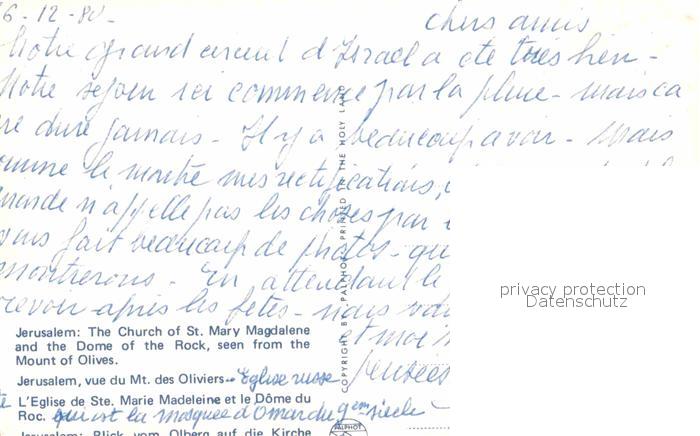 6-12-80-
chers amis
Notre grand circuit d'Israel a été très bien -
Notre sejour ici commence par la pluie - mais ca
ne dure jamais - Il y a beaucoup a voir - Mais
comme le montre mes rectifications,
monde n'appelle pas les choses par
fait beaucoup de photos - qu
montrerons - En attendant le
revoir après les fêtes - nous vou
et moi n
pensées
privacy protection
Datenschutz
COPYRIGHT BY PALPHOT PRINTED IN THE HOLY LAND
Jerusalem: The Church of St. Mary Magdalene
and the Dome of the Rock, seen from the
Mount of Olives.
Jerusalem, vue du Mt. des Oliviers - Eglise russe
L'Eglise de Ste. Marie Madeleine et le Dôme du
Roc. qui est la mosquée d'Omar du 9em siècle
PALPHOT
Jerusalem: Blick vom Ölberg auf die Kirche